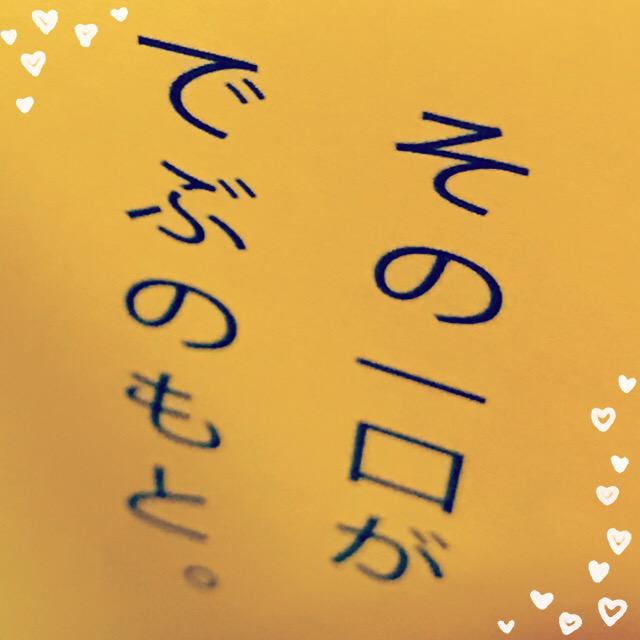 その一口が
でぶのもと。